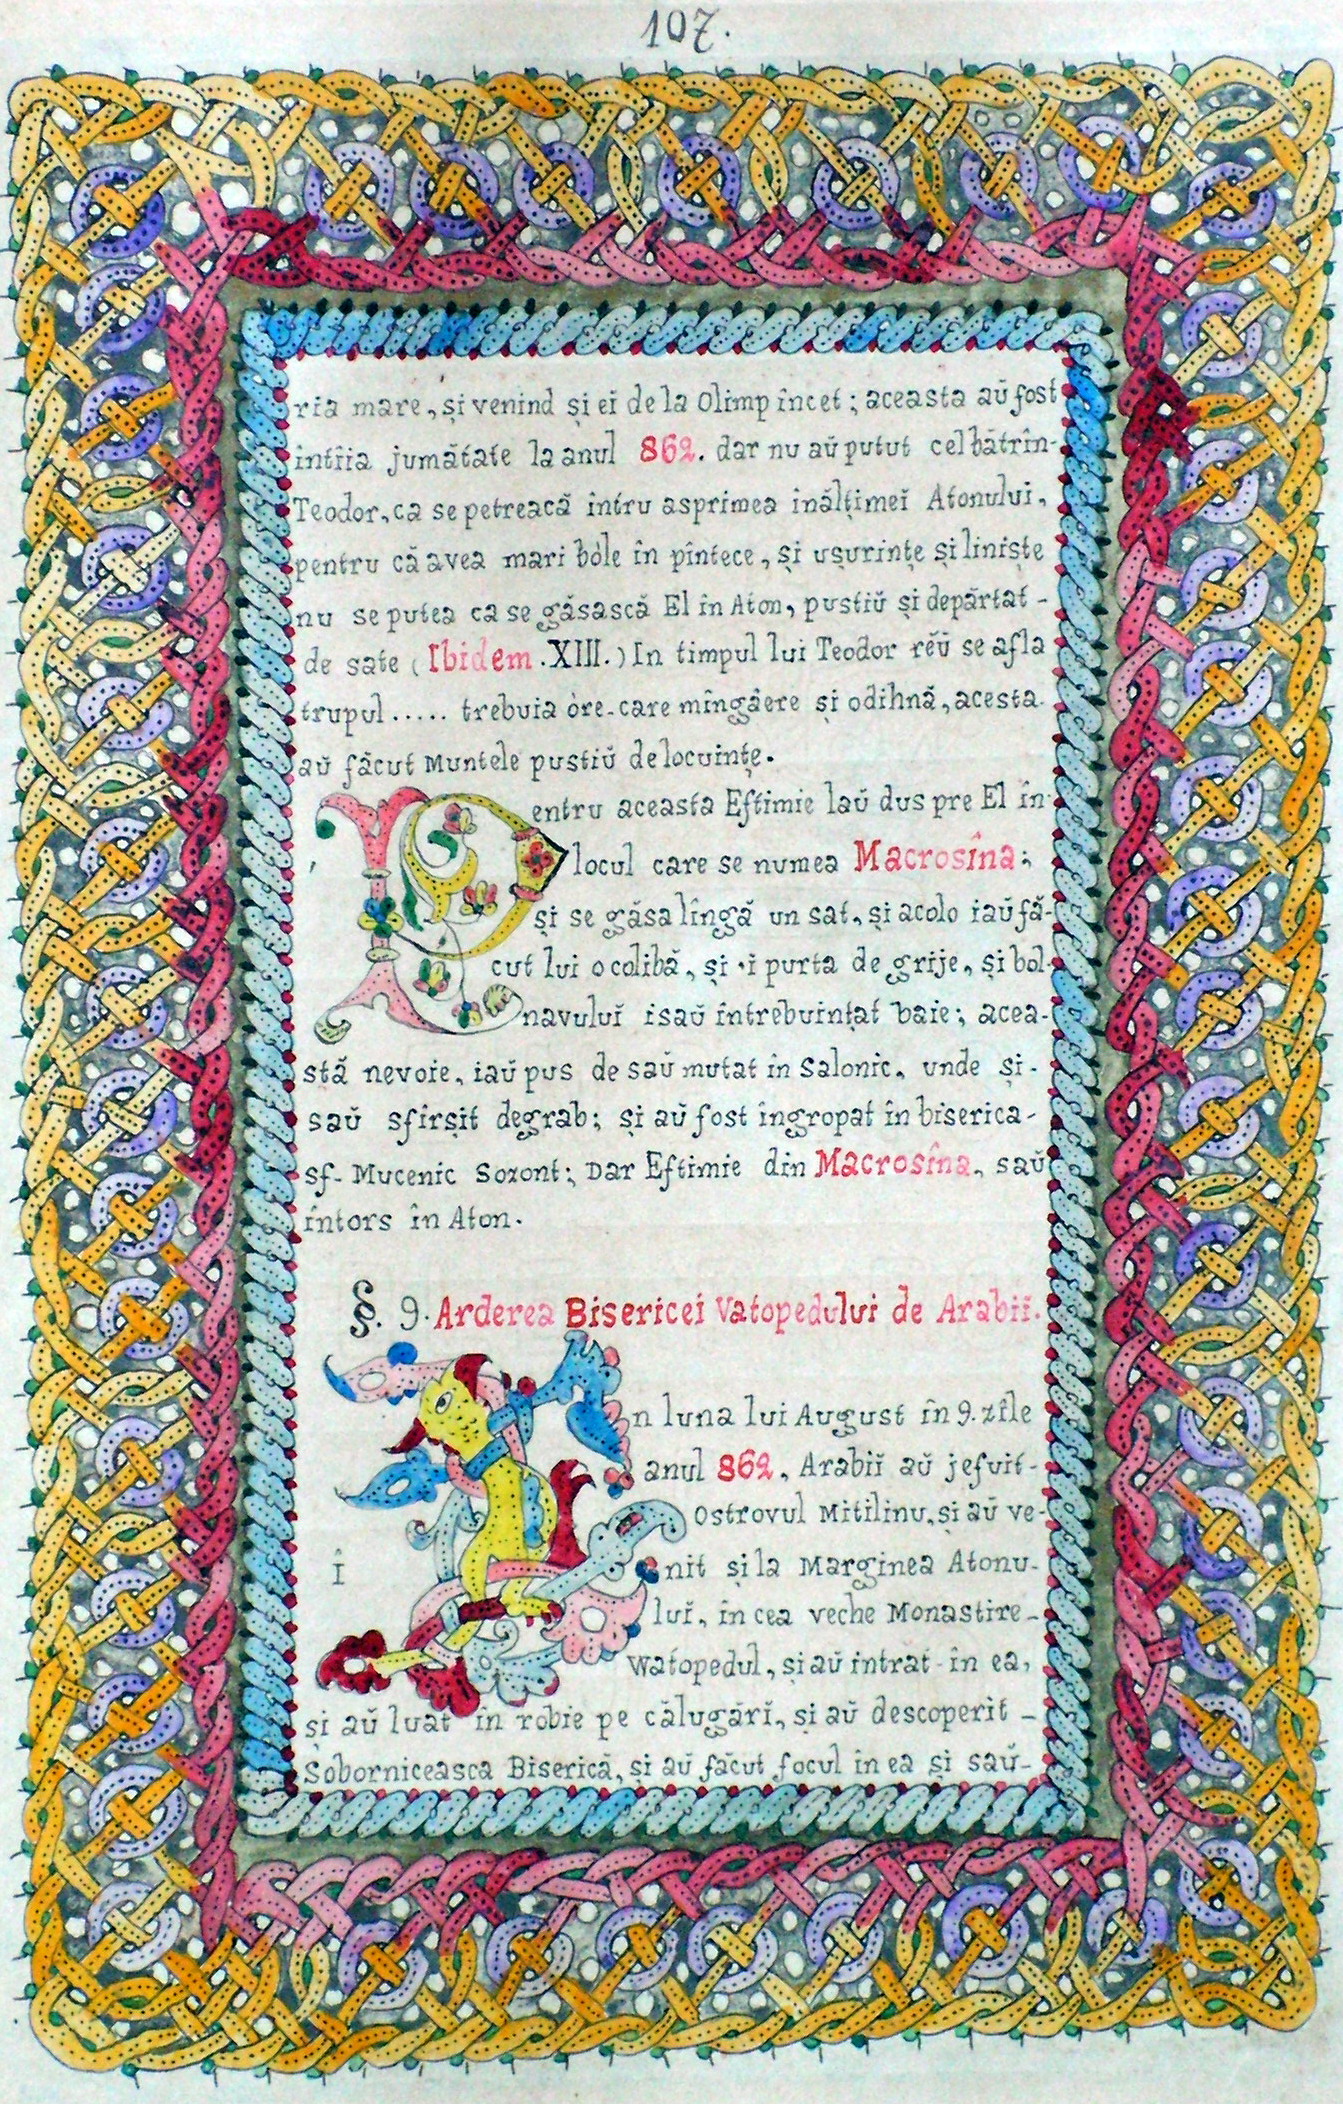 107.
ria mare, și venind și eĭ de la Olimp încet; aceasta aŭ fost
intîia jumătate la anul 862. dar nu aŭ putut cel bătrîn-
Teodor, ca se petreacă întru asprimea inălțimeĭ Atonului,
pentru că avea mari bóle în pîntece, și ușurințe și liniște
nu se putea ca se găsască El în Aton, pustiŭ și depărtat-
de sate (Ibidem. XIII.) In timpul lui Teodor rĕŭ se afla
trupul ..... trebuia óre-care mîngâere și odihnă, acesta
aŭ făcut Muntele pustiŭ de locuințe.
Pentru aceasta Eftimie laŭ dus pre El în-
locul care se numea Macrosîna;
și se găsa lîngă un sat, și acolo iaŭ fă-
cut lui o colibă, și 'i purta de grije, și bol-
navuluĭ isaŭ întrebuințat baie; acea-
stă nevoie, iaŭ pus de saŭ mutat în Salonic, unde și-
saŭ sfîrșit degrab; și aŭ fost îngropat în biserica-
sf- Mucenic Sozont; Dar Eftimie din Macrosîna, saŭ
întors în Aton.
§. 9. Arderea Bisericeĭ Vatopedului de Arabiĭ.
n luna lui August în 9. zile
anul 862, Arabiĭ aŭ jefuit-
Ostrovul Mitilinu, și aŭ ve-
Î nit și la Marginea Atonu-
luĭ, în cea veche Monastire-
Watopedul, și aŭ intrat în ea,
și aŭ luat în robie pe călugărĭ, și aŭ descoperit-
Soborniceasca Biserică, și aŭ făcut focul în ea și saŭ-